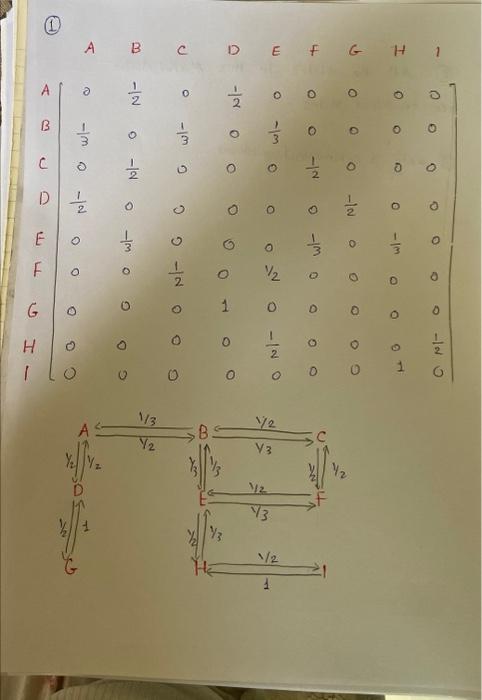 ①
A B C D E F G H I
A 0 1/2 0 1/2 0 0 0 0 0
B 1/3 0 1/3 0 1/3 0 0 0 0
C 0 1/2 0 0 0 1/2 0 0 0
D 1/2 0 0 0 0 0 1/2 0 0
E 0 1/3 0 0 0 1/3 0 1/3 0
F 0 0 1/2 0 1/2 0 0 0 0
G 0 0 0 1 0 0 0 0 0
H 0 0 0 0 1/2 0 0 0 1/2
I 0 0 0 0 0 0 0 1 0
1/3 1/2
A B C
1/2 1/3
1/2 1/2 1/3 1/3 1/2 1/2
D 1/2
E F
1/3
1/2 1 1/2 1/3
G 1/2
H I
1